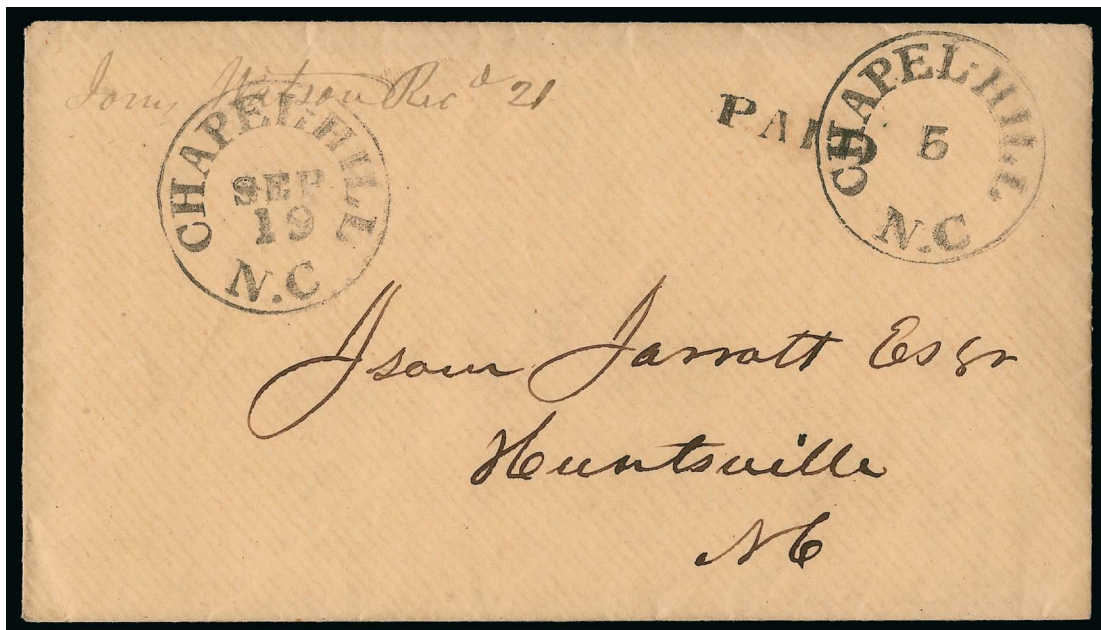 Watson Rec^d 21
CHAPEL-HILL
SEP
19
N.C
PAID
CHAPEL-HILL
5
N.C
Isom Jarratt Esqr
Huntsville
NC